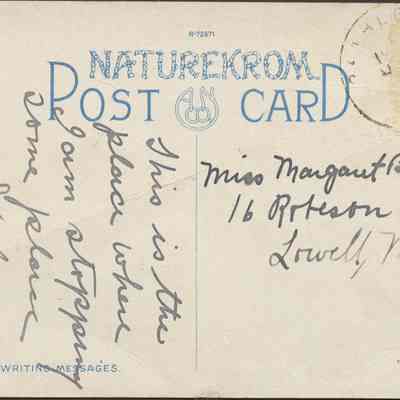 R-72871
NATUREKROM
POST CARD
This is the
place where
I am stopping
some place
Miss Margaret
16 Robeson
Lowell,
WRITING MESSAGES.